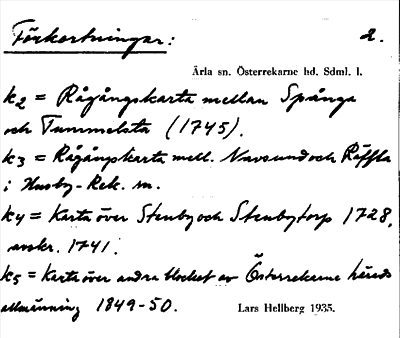 Förkortningar: 2.
Ärla sn. Österrekarne hd. Sdml. l.
k2 = Rågångskarta mellan Spånga
och Tummelsta (1745).
k3 = Rågångskarta mell. Navsund och Räffla
i Husby-Rek. sn.
k4 = Karta över Stenby och Stenbytorp 1728,
avskr. 1741.
k5 = Karta över andra blocket av Österrekarne härads
allmänning 1849-50. Lars Hellberg 1935.